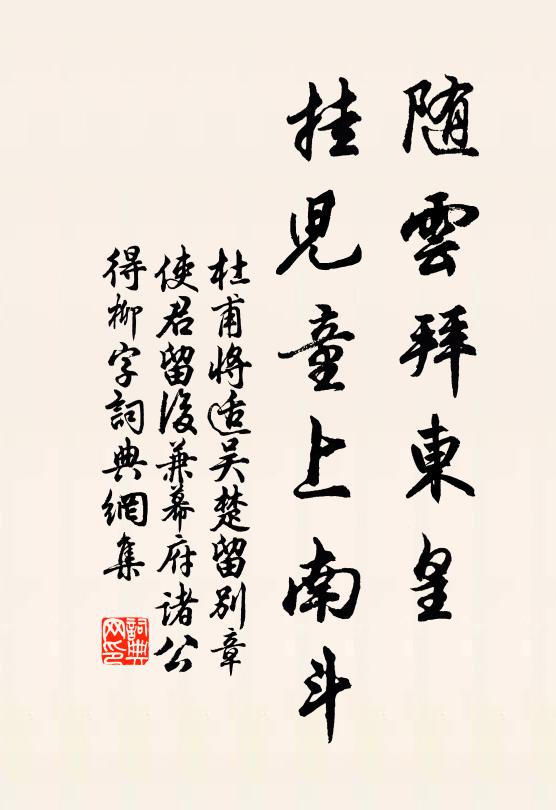 随雲拜東皇
挂兒童上南斗
杜甫將适吴楚留别章
使君留後兼幕府諸公
得柳字詞典網集
詞典网印